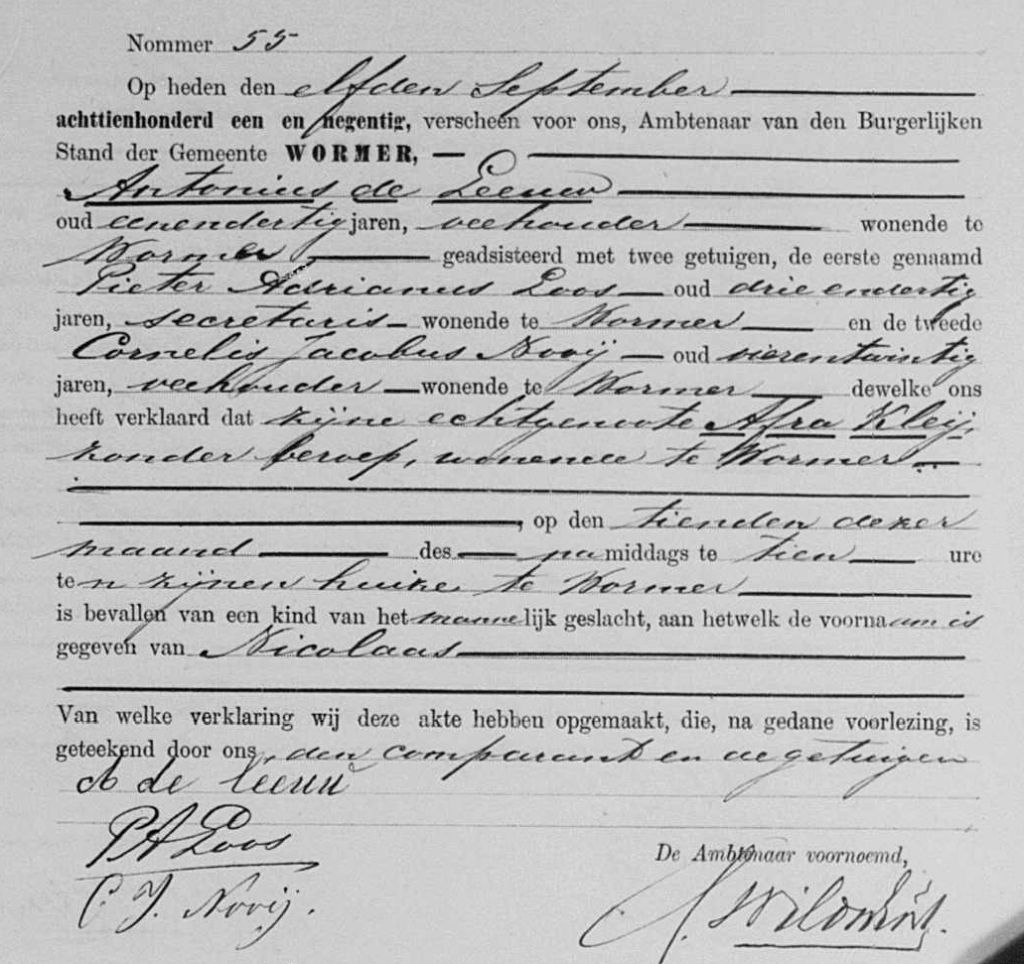 Nommer 55
Op heden den elfden September
achttienhonderd een en negentig, verscheen voor ons, Ambtenaar van den Burgerlijken
Stand der Gemeente WORMER,
Antonius de Leeuw
oud eenendertig jaren, veehouder wonende te
Wormer geadsisteerd met twee getuigen, de eerste genaamd
Pieter Adrianus Loos oud drie endertig
jaren, secretaris wonende te Wormer en de tweede
Cornelis Jacobus Nooij oud vierentwintig
jaren, veehouder wonende te Wormer dewelke ons
heeft verklaard dat zijne echtgenoote Afra Kleij,
zonder beroep, wonende te Wormer
, op den tienden dezer
maand des namiddags te tien ure
ten zijnen huize te Wormer
is bevallen van een kind van het mannelijk geslacht, aan hetwelk de voornaam is
gegeven van Nicolaas
Van welke verklaring wij deze akte hebben opgemaakt, die, na gedane voorlezing, is
geteekend door ons, den comparant en de getuigen
A de Leeuw
P A Loos
De Ambtenaar voornoemd,
C. J. Nooij.